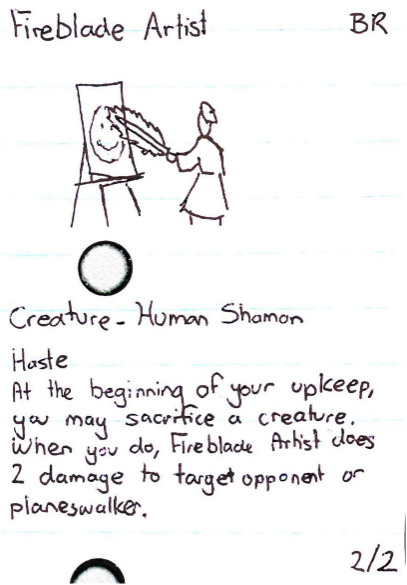 Fireblade Artist BR
Creature - Human Shaman
Haste
At the beginning of your upkeep,
you may sacrifice a creature.
When you do, Fireblade Artist does
2 damage to target opponent or
planeswalker.
2/2